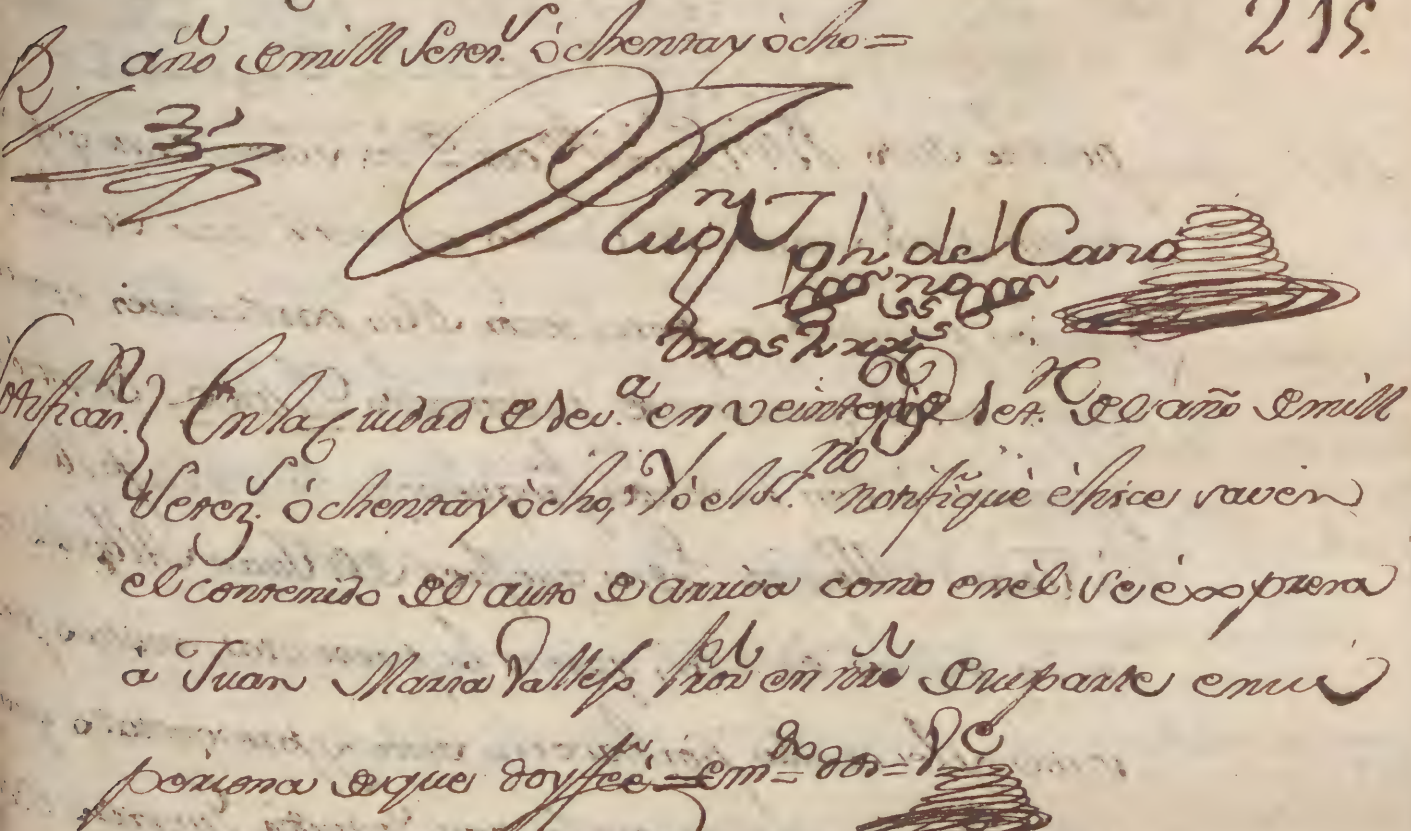 215.
año de mill Setez.s ochenta y ocho =
Juqn Jph del Cano
ss
Dros
Notifican.n } En la Ciudad de Sev.a en veinte y Set.re del año de mill
Setez.s ochenta y ocho, Yo el ess.no notifiquè è hice saver
el contenido del auto de arriva como en èl se èxpresa
à Juan Maria Vallejo Pror en nre de su parte en su
persona de que doy feè = em.do dos = Ve